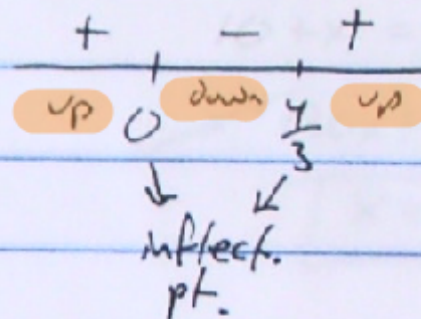 + - +
up 0 down 4/3 up
inflect.
pt.